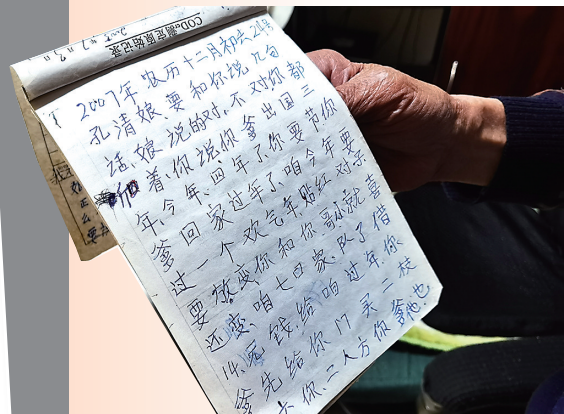 COD 测定原始记录
2007年农历十二月初六 21号
孔清娘、要和你说几句
话、娘说的对、不对你都
着、你说你爹出国三
年、今年、四年了你要节你
爹回家过年了、咱今年要
过一个欢气年、贴红对子
要放变、你和你哥小就喜
还变、咱七口家、
钱、给咱过年、你
爹先给你门买二枝
你、二人方你爹他也